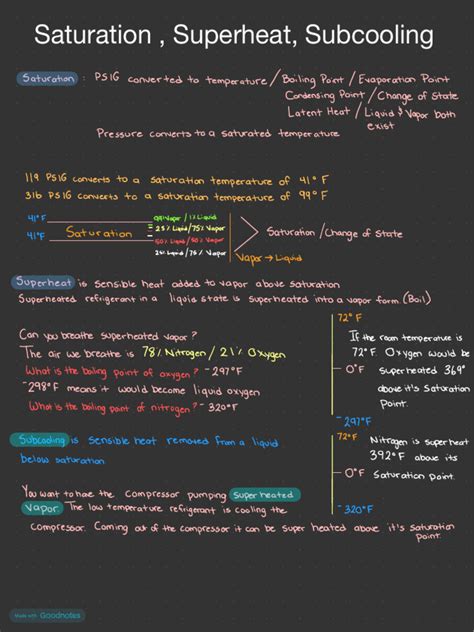 Saturation , Superheat, Subcooling
Saturation : PSIG converted to temperature / Boiling Point / Evaporation Point
Condensing Point / Change of State
Latent Heat / Liquid & Vapor both
exist
Pressure converts to a saturated temperature
119 PSIG converts to a saturation temperature of 41° F
316 PSIG converts to a saturation temperature of 99° F
41° F
41° F
Saturation
99% Vapor / 1% Liquid
25% Liquid / 75% Vapor
50% Liquid / 50% Vapor
25% Liquid / 75% Vapor
Saturation / Change of State
Vapor → Liquid
Superheat is sensible heat added to vapor above saturation
Superheated refrigerant in a liquid state is superheated into a vapor form. (Boil)
Can you breathe superheated vapor?
The air we breathe is 78% Nitrogen / 21% Oxygen
What is the boiling point of oxygen? -297°F
-298°F means it would become liquid oxygen
What is the boiling point of nitrogen? -320°F
72° F
0°F
-297°F
If the room temperature is
72°F Oxygen would be
superheated 369°
above it's Saturation
Point.
Subcooling is sensible heat removed from a liquid
below saturation
72°F
0°F
-320°F
Nitrogen is superheat
392°F above its
Saturation point.
You want to have the compressor pumping superheated
vapor. The low temperature refrigerant is cooling the
compressor. Coming out of the compressor it can be super heated above it's saturation
point.
Made with Goodnotes